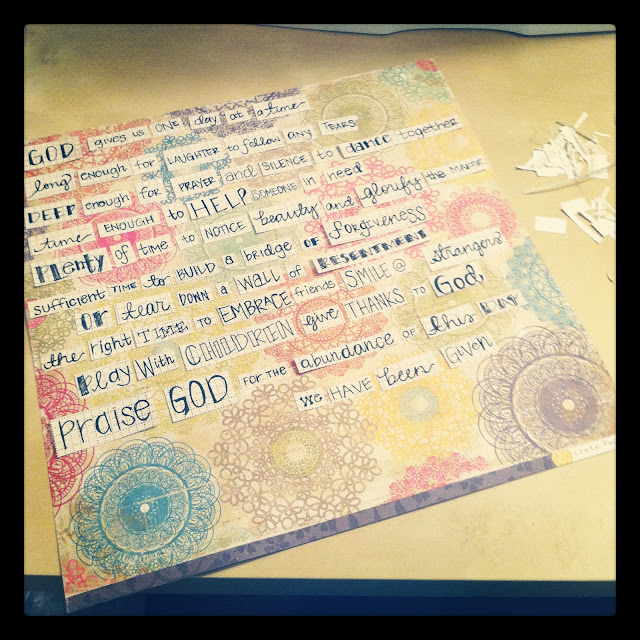 GOD gives us ONE day at a time
long enough for LAUGHTER to follow any TEARS
DEEP enough for PRAYER and SILENCE to dance together
time ENOUGH to HELP SOMEONE in need
Plenty of time to NOTICE beauty and glorify the MAKER
sufficient TIME to BUILD a bridge OF forgiveness
OR tear DOWN a WALL of RESENTMENT
the right TIME TO EMBRACE friends SMILE @ strangers
PLAY With CHILDREN give THANKS to God,
Praise GOD FOR THE abundance OF this DAY
We HAVE been GIVEN